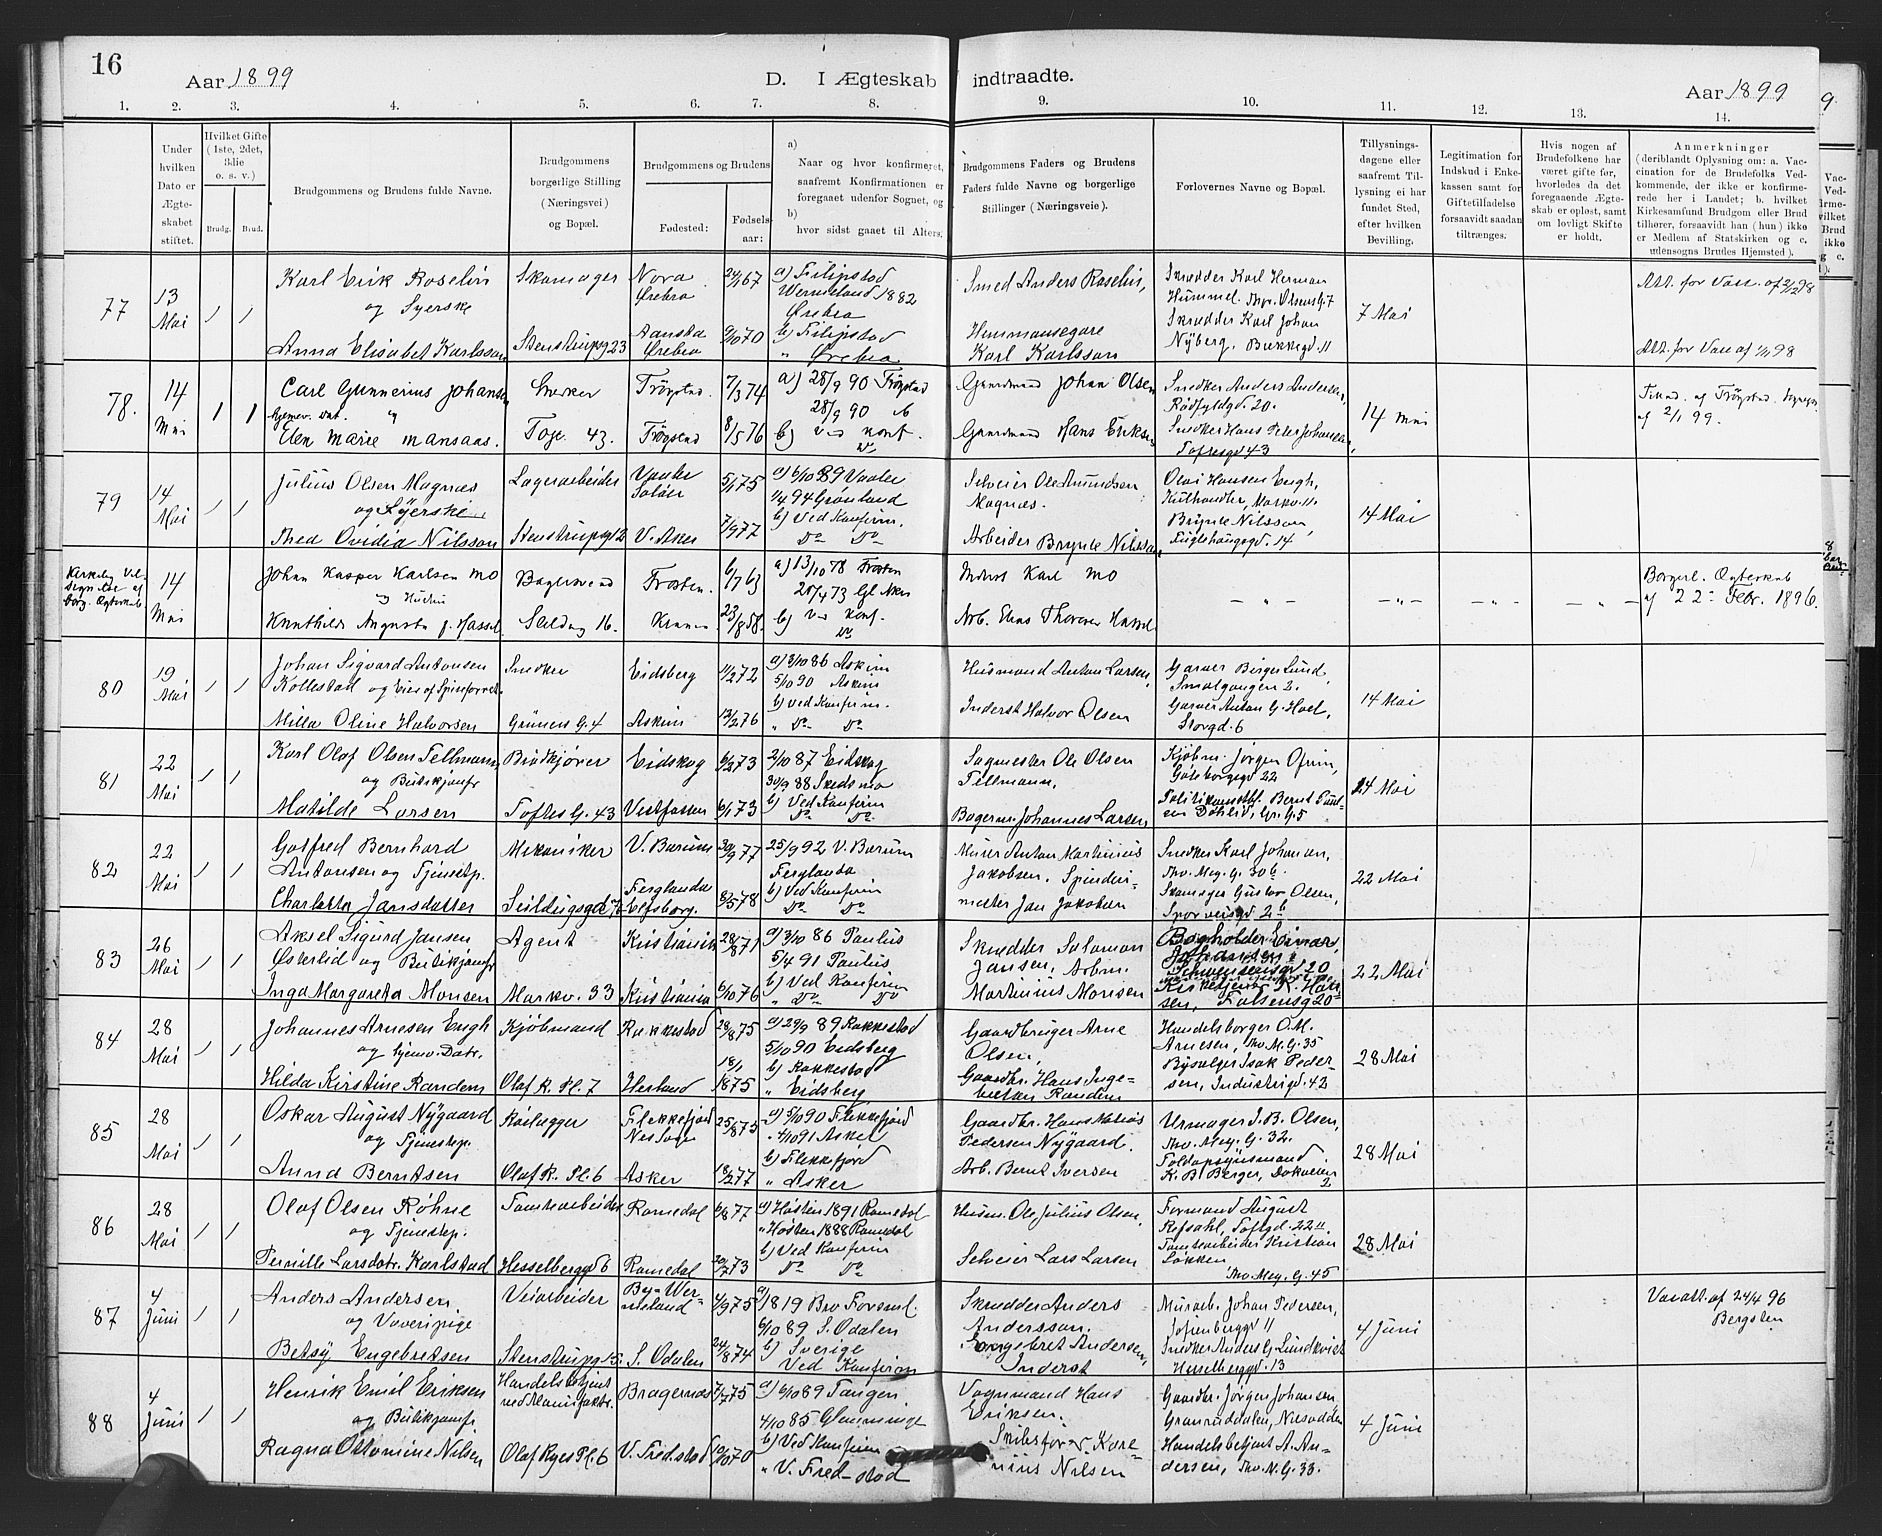 16
Aar 1899
D. I Ægteskab indtraadte.
Aar 1899
1. 2. 3. 4. 5. 6. 7. 8. 9. 10. 11. 12. 13. 14.
Under hvilken Dato er Ægteskabet stiftet.
Hvilket Gifte (1ste, 2det, 3die o. s. v.)
Brudg. Brud.
Brudgommens og Brudens fulde Navne.
Brudgommens borgerlige Stilling (Næringsvei) og Bopæl.
Brudgommens og Brudens
Fødested:
Fødselsaar:
a) Naar og hvor konfirmeret, saafremt Konfirmationen er foregaaet udenfor Sognet, og
b) hvor sidst gaaet til Alters.
Brudgommens Faders og Brudens Faders fulde Navne og borgerlige Stillinger (Næringsveie).
Forlovernes Navne og Bopæl.
Tillysningsdagene eller saafremt Tillysning ei har fundet Sted, efter hvilken Bevilling.
Legitimation for Indskud i Enkekassen samt for Giftetilladelse forsaavidt saadan tiltrænges.
Hvis nogen af Brudefolkene har været gifte før, hvorledes da det foregaaende Ægteskab er opløst, samt om lovligt Skifte er holdt.
Anmerkninger (deriblandt Oplysning om: a. Vaccination for de Brudefolks Vedkommende, der ikke er konfirmerede her i Landet; b. hvilket Kirkesamfund Brudgom eller Brud tilhører, forsaavidt han (hun) ikke er Medlem af Statskirken og c. udensogns Brudes Hjemsted).
77 13 Mai / / Karl Erik Roselin Skomager Nora Örebro 24/1 67 a) Filipstad Wermeland 1882 Smed Anders Roselin, Skrædder Karl Herman Hummel, Thv. Olsens G. 7 7 Mai Att. for Vacc. af
og Syerske Örebro
Anna Elisabet Karlsson Stenstrupg 23 Örebro 9/10 70 b) Filipstad " Örebro Hemmansegare Karl Karlsson Skrædder Karl Johan Nyberg, Bekkegd. 11 Att. for Vacc af 98
78. 14 Mai 1 1 Carl Gunnerius Johansen Snekker Trögstad 7/3 74 a) 28/9 90 Trögstad Gaardmand Johan Olsen Snedker Anders Andersen, Rødfyldgd. 20. 14 Mai af 2/1 99.
Hjemv. Dat. 28/9 90
Elen Marie Mansaas. 43. Trögstad 8/5 76 b) ved Konf. Do Gaardmand Hans Eriksen Snedker Hans Peter Johansen, Toftesgd 43
79 14 Mai / / Julius Olsen Magnæs Lagerarbeider Vaaler Solør 5/1 75 a) 6/10 89 Vaaler Selveier Ole Amundsen Magnæs. Olai Hansen Engh, Kulhandler, Markv. 11. 14 Mai
og Syerske 1/4 94 Grønland
Thea Ovidia Nilsson Stenstrupg 12 V. Aker 7/9 77 b) Ved Konfirm. Do Do Arbeider Brynte Nilsson Brynte Nilsson, Fuglehaugegd. 14
14 Mai Johan Kasper Karlsen Mo Bagersvend Frosten. 6/7 63 a) 13/10 78 Frosten Karl Mo – " – – " – – " – – " – Borgerl. Ægteskab af 22. Febr. 1896.
og Hustru 28/4 73 Gl Aker
Augusta f. Hassel Seildug 16. 23/8 58. b) ved Konf. Do Arb. Thorer Hassel
80 19 Mai / / Johan Sigvard Antonsen Kollestad Snedker Eidsberg 11/2 72 a) 3/10 86 Askim Husmand Anton Larsen, Garver Birger Lund, Smalgangen 2. 14 Mai
5/10 90 Askim
Milla Oline Halvorsen Grüners G. 4 Askim 13/2 76 b) Ved Konfirm. " Do Do Inderst Halvor Olsen Garver Anton G. Hoel, Storgd. 6
81 22 Mai / / Karl Olaf Olsen Tellmann Brødkjører Eidskog 6/2 73 2/10 87 Eidskog Sagmester Ole Olsen Tellmann, Kjøbm. Jørgen Gøteborggd 22 24 Mai
og Butikjomfr 30/9 88 Skedsmo
Matilde Larsen Toftes G. 43 Vestfossen 6/1 73 b) Ved Konfirm Do Do Bagerm. Johannes Larsen, Politikonst. Bernt Paulsen Gr. G. 5
82 22 Mai / / Gotfred Bernhard Antonsen og Tjenestp. Mekaniker V. Bærum 30/9 77 25/9 92 V. Bærum Murer Anton Martinius Jakobsen. Snedker Karl Johansen, Thv. Mey. G. 30 b. 22 Mai
Ferglanda
Charlotta Jansdatter Seildugsgd Ferglanda Elfsborg. 6/5 78 b) Ved Konfirm Do Do Spinderimester Jan Jakobsen Skomager Gustav Olsen, Sporveisgd 2 b
83 26 Mai / / Aksel Sigurd Jansen Østerlid og Butikjomfr Agent Kristiania 28/8 71 a) 3/10 86 Paulus Skrædder Salomon Jansen, Bogholder Einar Johansen, Schwensensgd 20 22 Mai
5/4 91 Paulus
Inga Margareta Monsen Markv. 33 Kristiania 6/10 76 b) Ved Konfirm " Do Do Arbm. Martinius Monsen Kirketjener K. Hansen, Falsensg 20
84 28 Mai / / Johannes Arnesen Engh Kjøbmand Rakkestad 28/8 75 a) 29/9 89 Rakkestad Gaardbruger Arne Olsen, Handelsborger O. M. Arnesen, Thv M. G. 35 28 Mai
og hjemv. Datr. 5/10 90 Eidsberg
Hilda Kirstine Randem Olaf R. Pl. 7 Herland 18/1 1875 b) Rakkestad " Eidsberg Gaardbr. Hans Ingebretsen Randem Bysælger Isak Pedersen, Industrigd. 42
85 28 Mai / / Oskar August Nygaard Rørlægger Flekkefjord 25/8 75 a) 5/10 90 Flekkefjord Gaardbr. Hans Matias Pedersen Nygaard. Urmager J. B. Olsen, Thv. Mey. G. 32. 28 Mai
og Tjenestp. 4/10 91 Asker
Anna Berntsen Olaf R. Pl. 6 Asker 18/2 77 b) Flekkefjord " Asker Arb. Bernt Iversen Toldopsynsmand K. B. Berger, Dokveien 2
86 28 Mai / / Olaf Olsen Röhne Tomtearbeider Romedal 6/8 77 a) Høsten 1891 Romedal Husm. Ole Julius Olsen, Formand August Refsahl, Toftgd. 22 28 Mai
og Tjenestep. " Høsten 1888 Romedal
Pernille Larsdatr. Karlstad Hesselberggd 6 Romedal 20/7 73 b) Ved Konfirm Do Do Selveier Lars Larsen Tomtearbeider Kristian Løkken Thv Mey. G. 45
87 4 Juni / / Anders Andersen Veiarbeider By-Wermeland 4/9 75 a) 1819 Bro Forsml. Skrædder Anders Andersson. Murarb. Johan Pedersen, Sofienberggd 11 4 Juni Vacatt. af 24/4 96 Bergsten
og Væveripige 6/10 89 S. Odalen
Betsy Engebretsen Stenstrupgd 15. S. Odalen 24/8 74 b) Sverige Ved Konfirm Engebret Andersen, Inderst Snedker Anders G. Lundkvist Hesselberggd. 13
88 4 Juni / / Henrik Emil Eriksen Handelsbetjent Bragernæs 7/7 75 a) 6/10 89 Tangen Vognmand Hans Eriksen. Gaardbr. Jörgen Johansen, Granruddalen, Nesodden 4 Juni
og Butikjomfr. 4/10 85 Glemminge
Ragna Ottomine Nilsen Olaf Ryes Pl. 6 V. Fredstad 10/10 70 b) Ved Konfirm " V. Fredstad Skibsfor. Karenius Nilsen Handelsbetjent A. Andersen, Thv. M. G. 33.